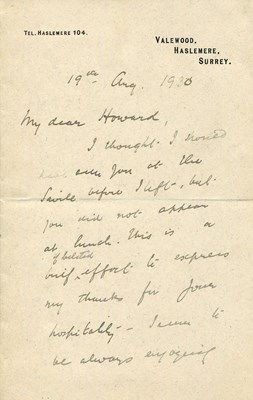 TEL. HASLEMERE 104.
VALEWOOD,
HASLEMERE,
SURREY.
19th Aug. 1930
My dear Howard,
I thought I should
have seen you at the
Savile before I left, but
you did not appear
at lunch. This is a
belated
brief effort to express
my thanks for your
hospitality – I seem to
be always enjoying